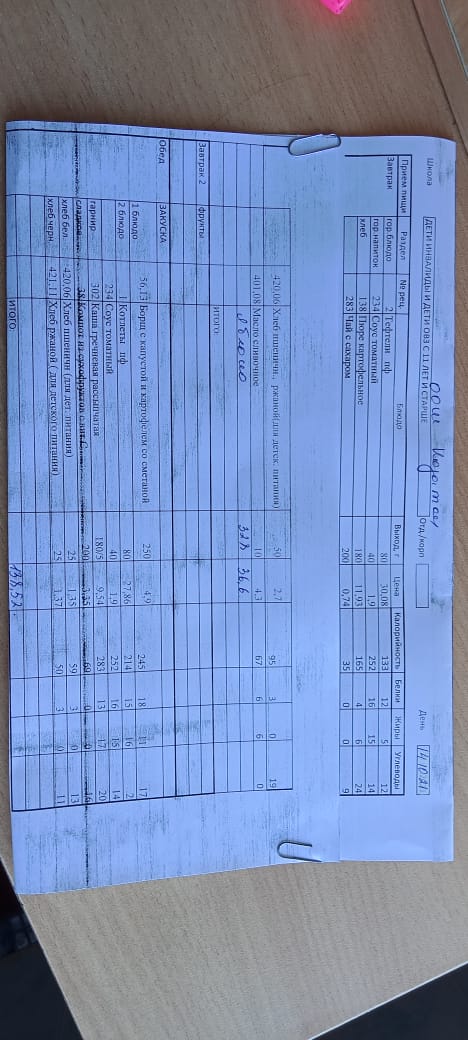 Школа ДЕТИ ИНВАЛИДЫ И ДЕТИ ОВЗ С 11 ЛЕТ И СТАРШЕ Отд./корп День 14.10.21
ООШ
Прием пищи Раздел № рец. Блюдо Выход, г Цена Калорийность Белки Жиры Углеводы
Завтрак гор.блюдо 2 Тефтели пф 80 30,08 133 12 5 12
гор.напиток 234 Соус томатный 40 1,9 252 16 15 14
хлеб 138 Пюре картофельное 180 11,93 165 4 6 24
283 Чай с сахаром 200 0,74 35 0 0 9
420,06 Хлеб пшеничн., ржаной(для детск. питания) 50 2,7 95 3 0 19
401,08 Масло сливочное 10 4,3 67 6 6 0
яблоко 327 36,6
ИТОГО:
Завтрак 2 фрукты
Обед ЗАКУСКА
1 блюдо 56,13 Борщ с капустой и картофелем со сметаной 250 4,9 245 18 11 17
2 блюдо 1 Котлеты пф 80 27,86 214 15 16 2
234 Соус томатный 40 1,9 252 16 15 14
гарнир 302 Каша гречневая рассыпчатая 180/5 9,54 283 13 17 20
сладкое 38 Компот из сухофруктов с вит С 200 3,35 60 0 0 16
хлеб бел. 420,06 Хлеб пшеничн (для дет. питания) 25 1,35 59 3 0 13
хлеб черн. 421,11 Хлеб ржаной ( для детского питания) 25 1,37 50 3 0 11
ИТОГО: 138,52